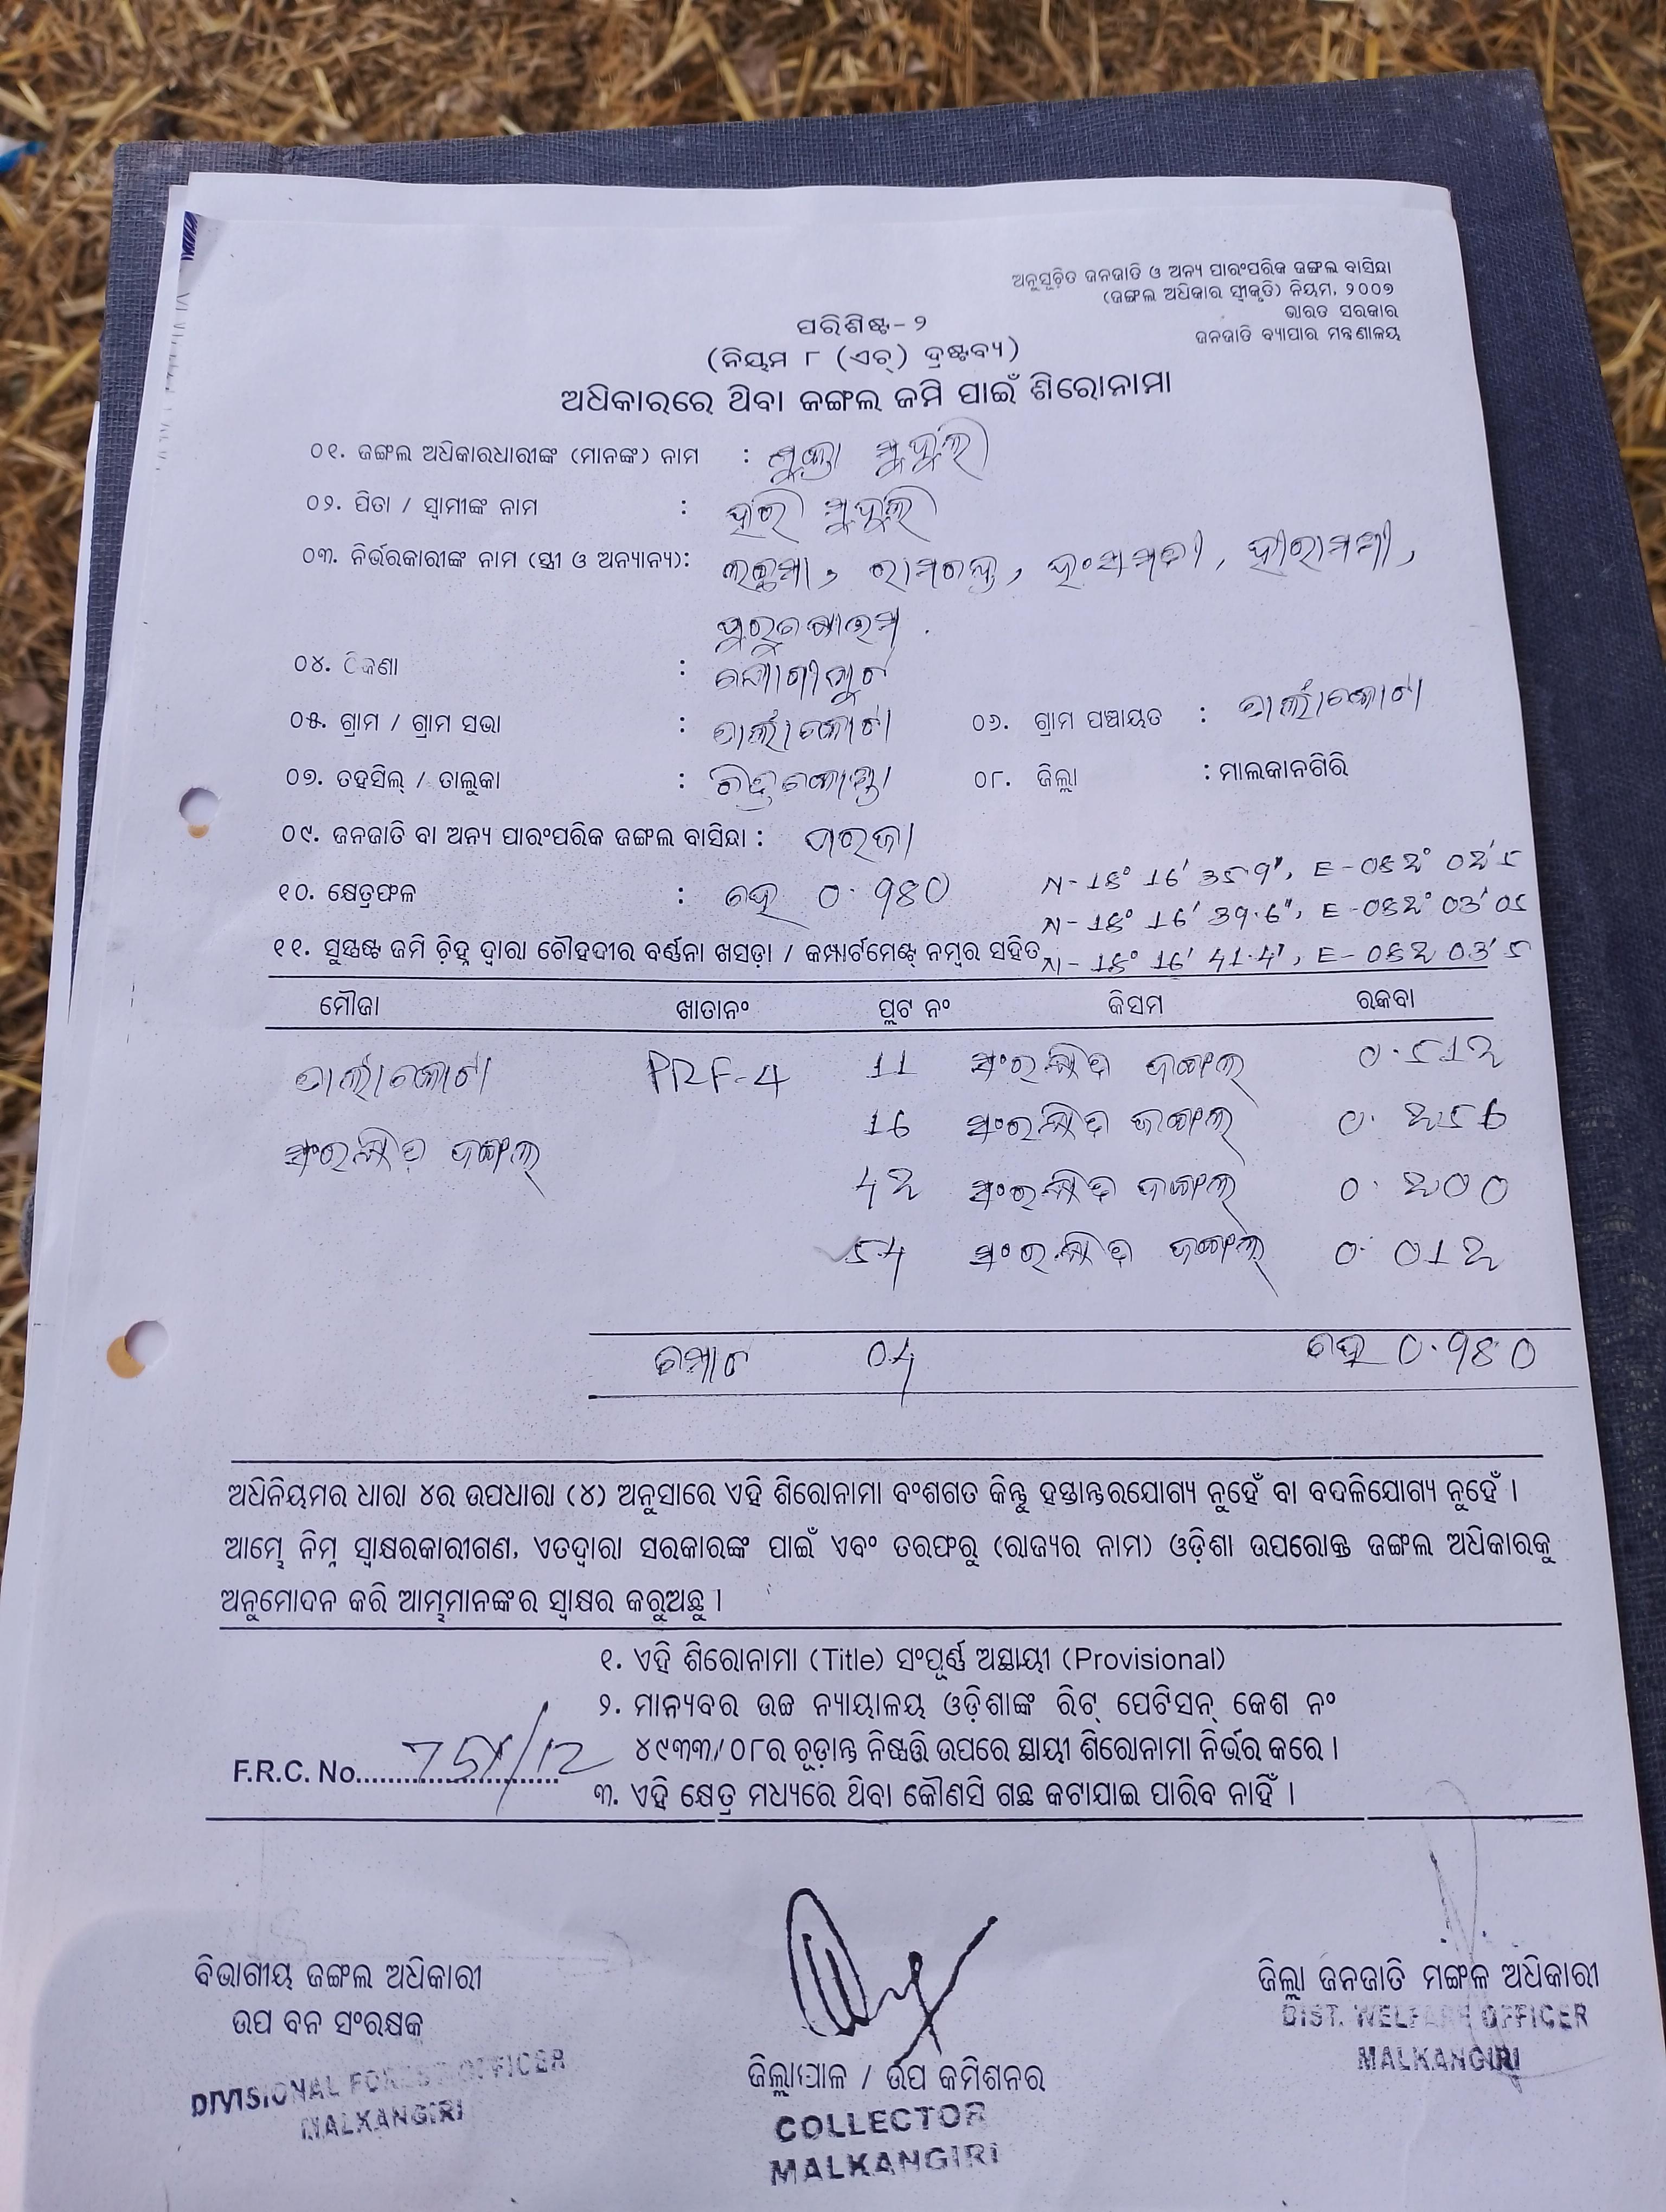 ଅନୁସୂଚିତ ଜନଜାତି ଓ ଅନ୍ୟ ପାରଂପରିକ ଜଙ୍ଗଲ ବାସିନ୍ଦା
(ଜଙ୍ଗଲ ଅଧିକାର ସ୍ୱୀକୃତି) ନିୟମ, ୨୦୦୭
ଭାରତ ସରକାର
ଜନଜାତି ବ୍ୟାପାର ମନ୍ତ୍ରଣାଳୟ
ପରିଶିଷ୍ଟ-୨
(ନିୟମ ୮ (ଏଚ୍) ଦ୍ରଷ୍ଟବ୍ୟ)
ଅଧିକାରରେ ଥିବା ଜଙ୍ଗଲ ଜମି ପାଇଁ ଶିରୋନାମା
୦୧. ଜଙ୍ଗଲ ଅଧିକାରଧାରୀଙ୍କ (ମାନଙ୍କ) ନାମ : ମୁଦୁଲି
୦୨. ପିତା / ସ୍ୱାମୀଙ୍କ ନାମ : ହରି ମୁଦୁଲି
୦୩. ନିର୍ଭରକାରୀଙ୍କ ନାମ (ସ୍ତ୍ରୀ ଓ ଅନ୍ୟାନ୍ୟ): ଲଛମା, ରାମଚନ୍ଦ୍ର, ହଂସମତୀ, ହୀରାମଣୀ,
୦୪. ଠିକଣା :
୦୫. ଗ୍ରାମ / ଗ୍ରାମ ସଭା : ଟାର୍ଲାକୋଟା ୦୬. ଗ୍ରାମ ପଞ୍ଚାୟତ : ଟାର୍ଲାକୋଟା
୦୭. ତହସିଲ୍ / ତାଲୁକା : ଚିତ୍ରକୋଣ୍ଡା ୦୮. ଜିଲ୍ଲା : ମାଲକାନଗିରି
୦୯. ଜନଜାତି ବା ଅନ୍ୟ ପାରଂପରିକ ଜଙ୍ଗଲ ବାସିନ୍ଦା : ପରଜା
୧୦. କ୍ଷେତ୍ରଫଳ : ହେ 0.980
୧୧. ସୁସ୍ପଷ୍ଟ ଜମି ଚିହ୍ନ ଦ୍ୱାରା ଚୌହଦୀର ବର୍ଣ୍ଣନା ଖସଡ଼ା / କମ୍ପାର୍ଟମେଣ୍ଟ୍ ନମ୍ବର ସହିତ
ମୌଜା ଖାତାନଂ ପ୍ଲଟ ନଂ କିସମ ରକବା
ଟାର୍ଲାକୋଟା PRF-4 11 ସଂରକ୍ଷିତ ଜଙ୍ଗଲ୍ 0.512
ସଂରକ୍ଷିତ ଜଙ୍ଗଲ୍ 16 ସଂରକ୍ଷିତ ଜଙ୍ଗଲ୍ 0.256
42 ସଂରକ୍ଷିତ ଜଙ୍ଗଲ୍ 0.200
54 ସଂରକ୍ଷିତ ଜଙ୍ଗଲ୍ 0.012
ମୋଟ 04 ହେ 0.980
ଅଧିନିୟମର ଧାରା ୪ର ଉପଧାରା (୪) ଅନୁସାରେ ଏହି ଶିରୋନାମା ବଂଶଗତ କିନ୍ତୁ ହସ୍ତାନ୍ତରଯୋଗ୍ୟ ନୁହେଁ ବା ବଦଳିଯୋଗ୍ୟ ନୁହେଁ ।
ଆମ୍ଭେ ନିମ୍ନ ସ୍ୱାକ୍ଷରକାରୀଗଣ, ଏତଦ୍ଦ୍ୱାରା ସରକାରଙ୍କ ପାଇଁ ଏବଂ ତରଫରୁ (ରାଜ୍ୟର ନାମ) ଓଡ଼ିଶା ଉପରୋକ୍ତ ଜଙ୍ଗଲ ଅଧିକାରକୁ
ଅନୁମୋଦନ କରି ଆମ୍ଭମାନଙ୍କର ସ୍ୱାକ୍ଷର କରୁଅଛୁ ।
୧. ଏହି ଶିରୋନାମା (Title) ସଂପୂର୍ଣ୍ଣ ଅସ୍ଥାୟୀ (Provisional)
୨. ମାନ୍ୟବର ଉଚ୍ଚ ନ୍ୟାୟାଳୟ ଓଡ଼ିଶାଙ୍କ ରିଟ୍ ପେଟିସନ୍ କେଶ ନଂ
୪୯୩୩/୦୮ର ଚୂଡ଼ାନ୍ତ ନିଷ୍ପତ୍ତି ଉପରେ ସ୍ଥାୟୀ ଶିରୋନାମା ନିର୍ଭର କରେ ।
F.R.C. No.
୩. ଏହି କ୍ଷେତ୍ର ମଧ୍ୟରେ ଥିବା କୌଣସି ଗଛ କଟାଯାଇ ପାରିବ ନାହିଁ ।
ବିଭାଗୀୟ ଜଙ୍ଗଲ ଅଧିକାରୀ
ଉପ ବନ ସଂରକ୍ଷକ
DIVISIONAL FOREST OFFICER
MALKANGIRI
ଜିଲ୍ଲାପାଳ / ଉପ କମିଶନର
COLLECTOR
MALKANGIRI
ଜିଲ୍ଲା ଜନଜାତି ମଙ୍ଗଳ ଅଧିକାରୀ
DIST. WELFARE OFFICER
MALKANGIRI